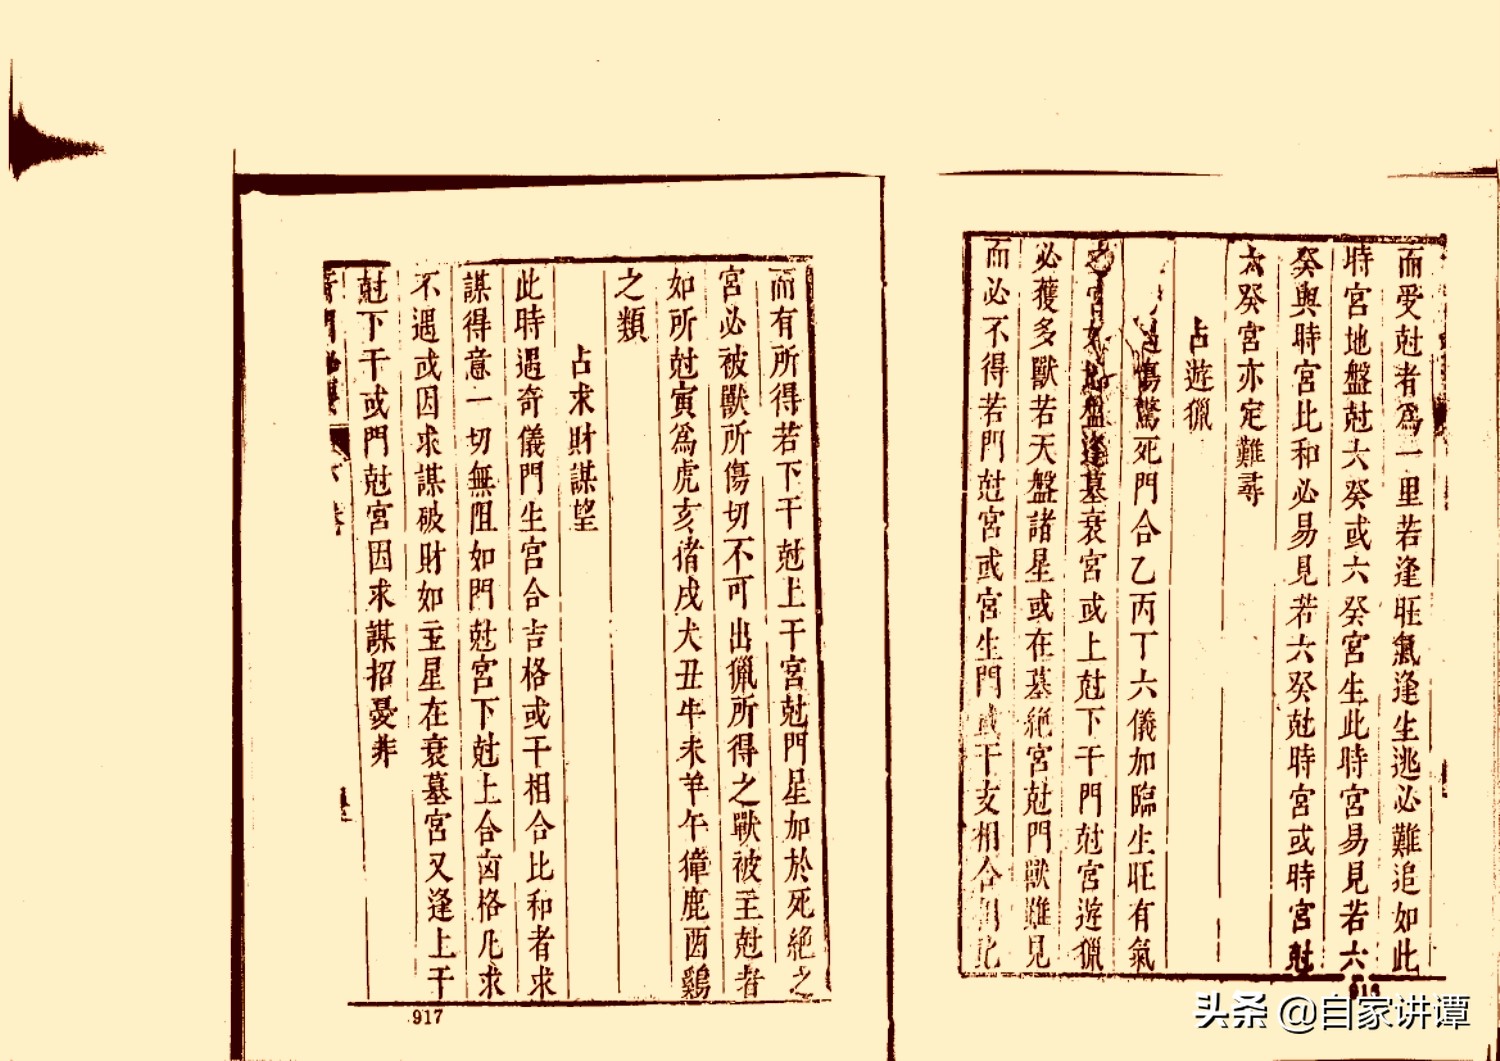 而受尅者爲一里若逢旺氣逢生逃必難追如此
時宮地盤尅六癸或六癸宮生此時宮易見若六
癸與時宮比和必易見若六癸尅時宮或時宮尅
六癸宮亦定難尋
占遊獵
傷驚死門合乙丙丁六儀加臨生旺有氣
之宮如地盤逢墓衰宮或上尅下干門尅宮遊獵
必獲多獸若天盤諸星或在墓絕宮尅門獸雖見
而必不得若門尅宮或宮生門或干支相合相比
而有所得若下干尅上干宮尅門星加於死絕之
宮必被獸所傷切不可出獵所得之獸被主尅者
如所尅寅爲虎亥猪戌犬丑牛未羊午獐鹿酉鷄
之類
占求財謀望
此時遇奇儀門生宮合吉格或干相合比和者求
謀得意一切無阻如門尅宮下尅上合凶格凡求
不遇或因求謀破財如主星在衰墓宮又逢上干
尅下干或門尅宮因求謀招憂非
917
头条 @自家讲谭